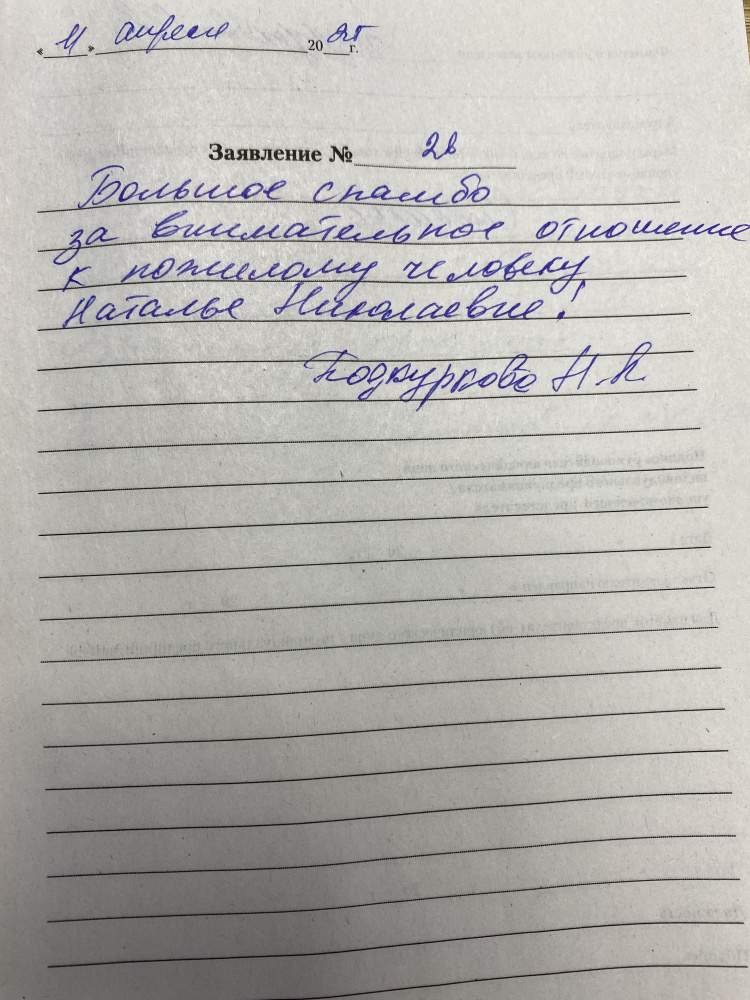 « 11 » апреля 2025 г.
Заявление № 26
Большое спасибо
за внимательное отношение
к пожилому человеку
Наталье Николаевне!
Подкуркова Н.А.